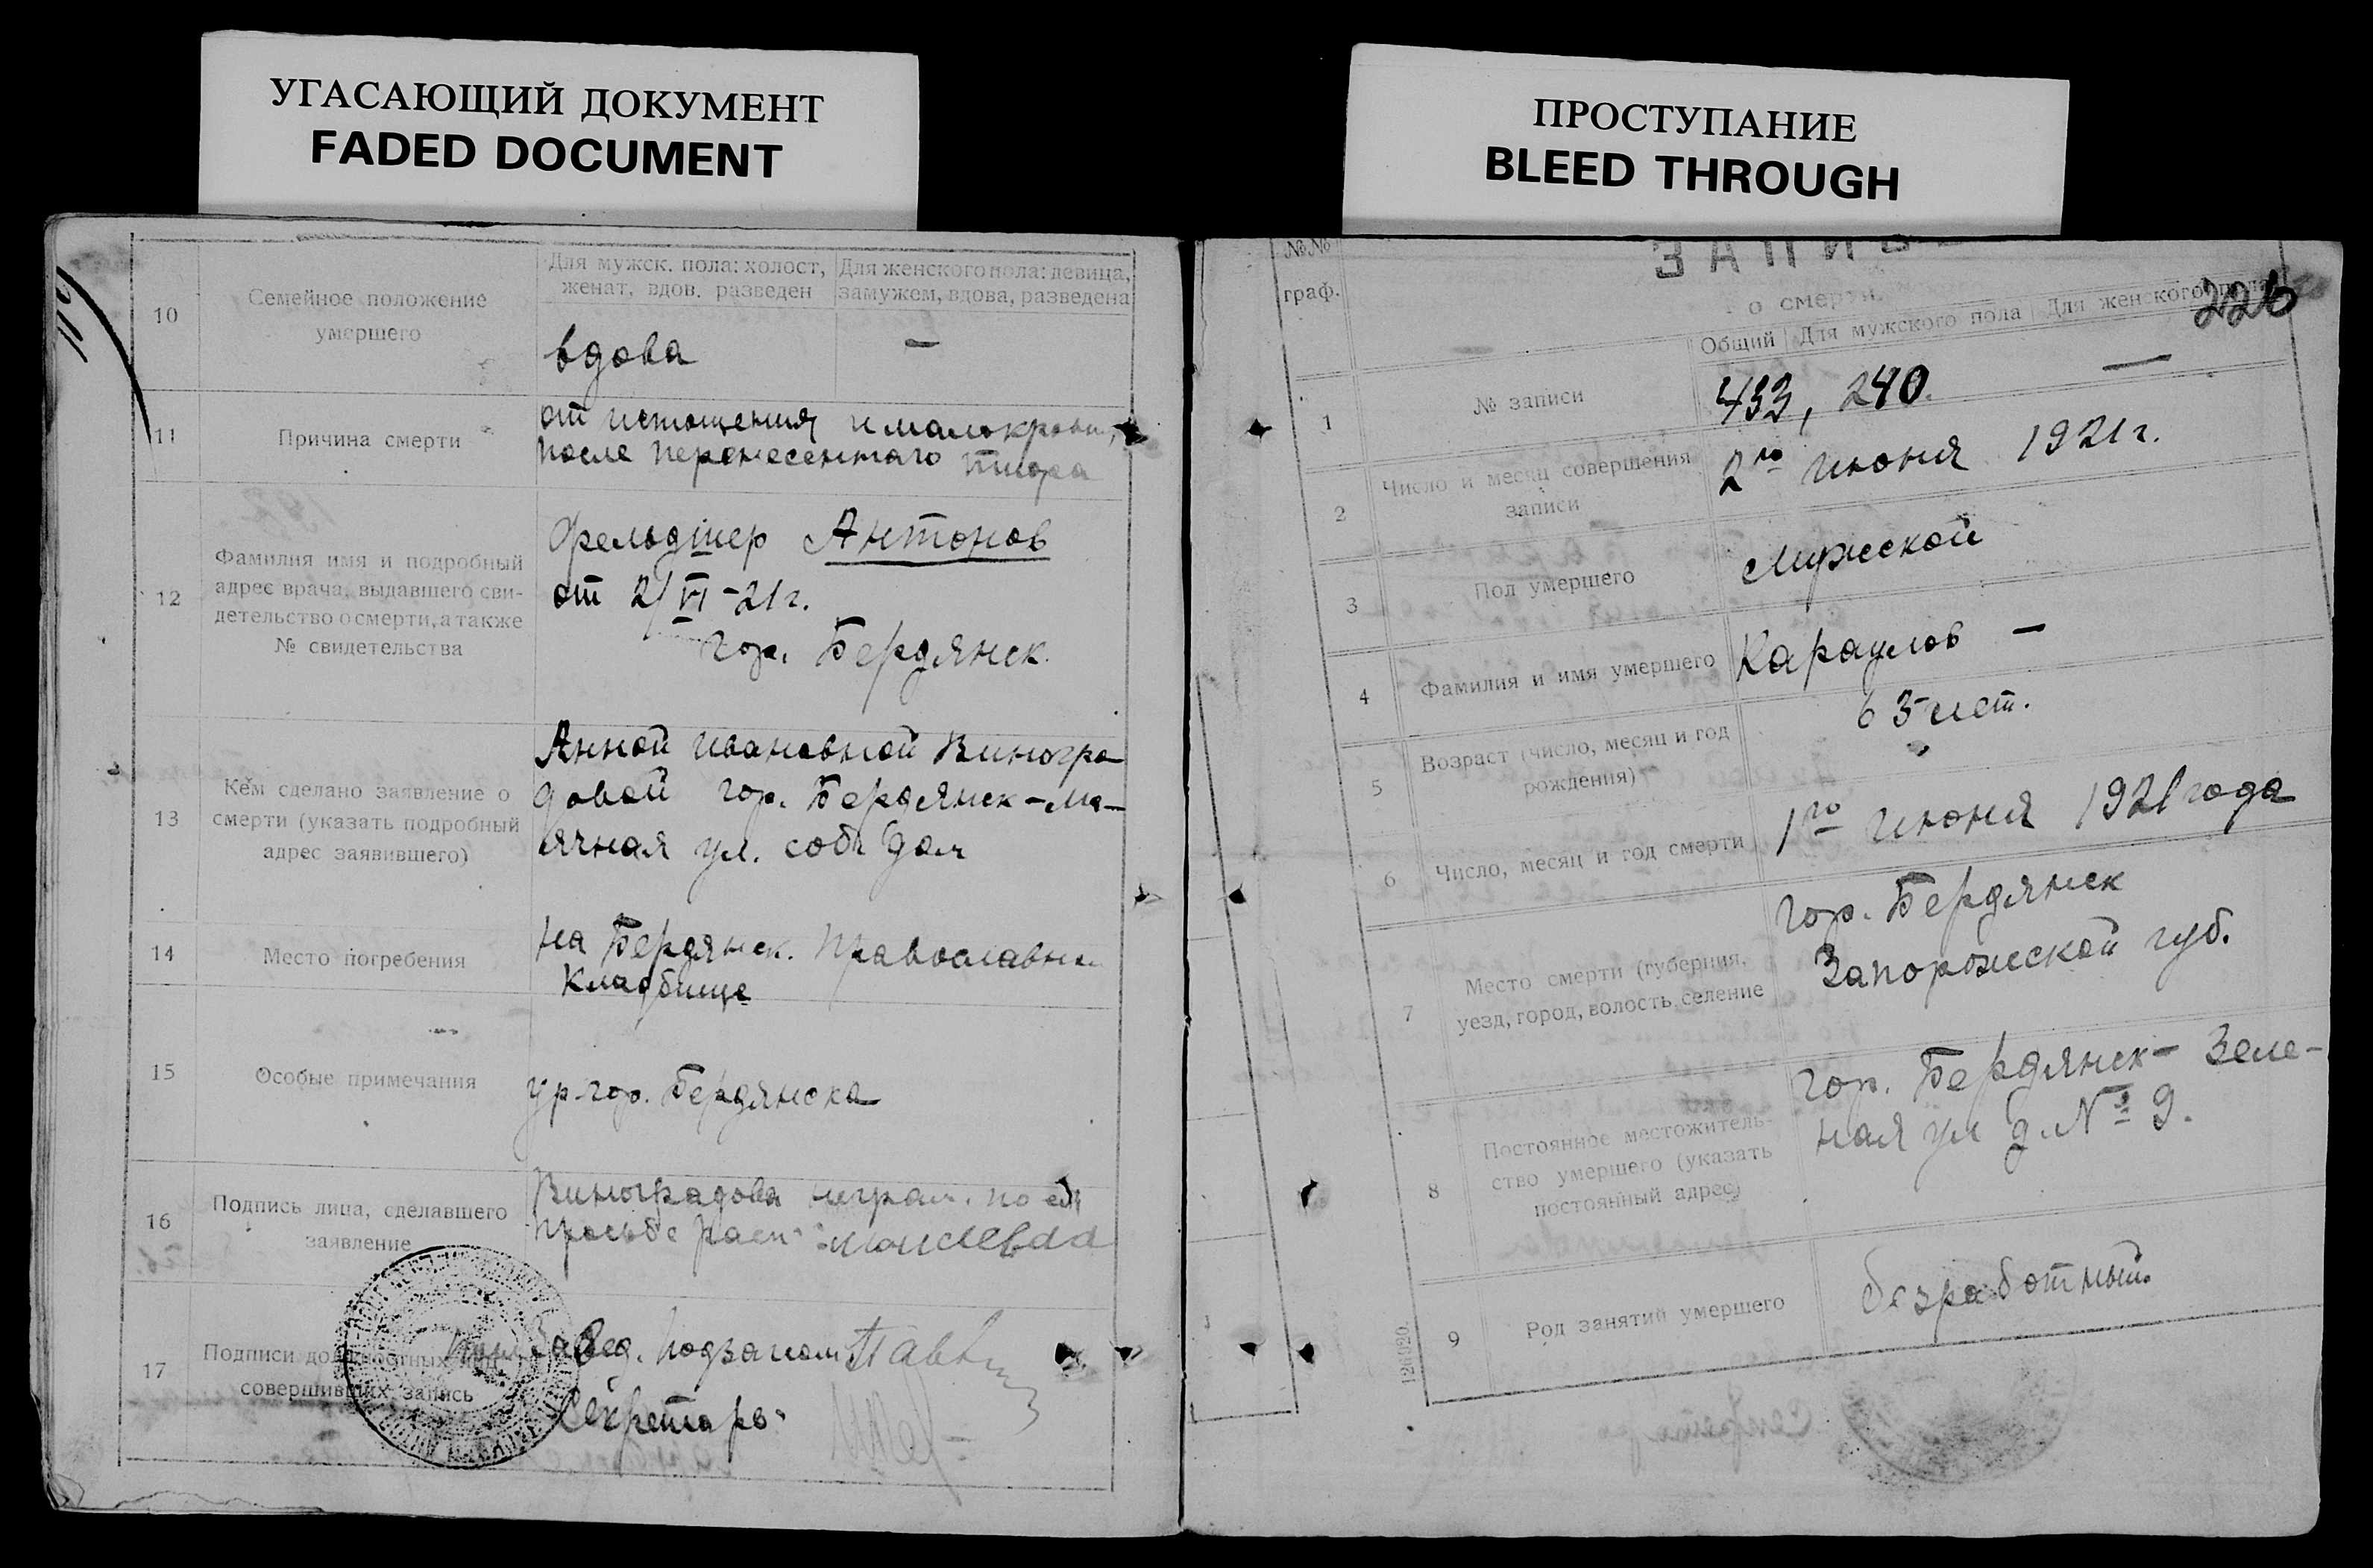 УГАСАЮЩИЙ ДОКУМЕНТ
FADED DOCUMENT
10
Семейное положение
умершего
Для мужск. пола: холост,
женат, вдов, разведен
Для женского пола: девица,
замужем, вдова, разведена
вдова
—
11
Причина смерти
от истощения и малокровия,
после перенесеннаго тифа
12
Фамилия имя и подробный
адрес врача, выдавшего сви-
детельство о смерти, а также
№ свидетельства
Фельдшер Антонов
от 2/VI-21г.
гор. Бердянск.
13
Кем сделано заявление о
смерти (указать подробный
адрес заявившего)
Анной Ивановной Виногра
довой гор. Бердянск-Ма-
ячная ул. соб. дом
14
Место погребения
на Бердянск. Православн
Кладбище
15
Особые примечания
ур. гор. Бердянска
16
Подпись лица, сделавшего
заявление
Виноградова неграм. по ея
просьбе расп.
17
Подписи должностных лиц
совершивших запись
Завед. Подзагсом
Секретарь
ПРОСТУПАНИЕ
BLEED THROUGH
№№
граф.
ЗАПИСЬ
о смерти
226
Общий
Для мужского пола
Для женского пола
1
№ записи
433, 240.
—
2
Число и месяц совершения
записи
2го июня 1921г.
3
Пол умершего
Мужской
4
Фамилия и имя умершего
Караулов —
5
Возраст (число, месяц и год
рождения)
63 лет.
6
Число, месяц и год смерти
1го июня 1921 года
7
Место смерти (губерния,
уезд, город, волость, селение
гор. Бердянск
Запорожской губ.
8
Постоянное местожитель-
ство умершего (указать
постоянный адрес)
гор. Бердянск- Зеле-
ная ул д. № 9.
9
Род занятий умершего
безработный.
126920.